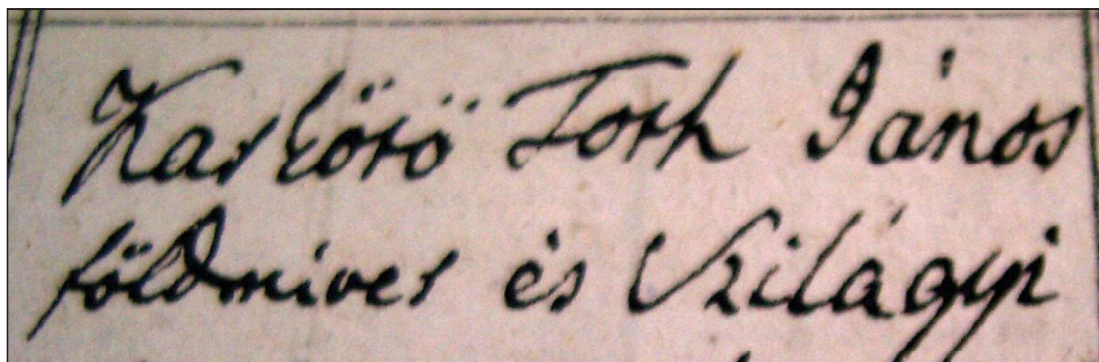 Kaskötö Toth János
földmives és Szilágyi